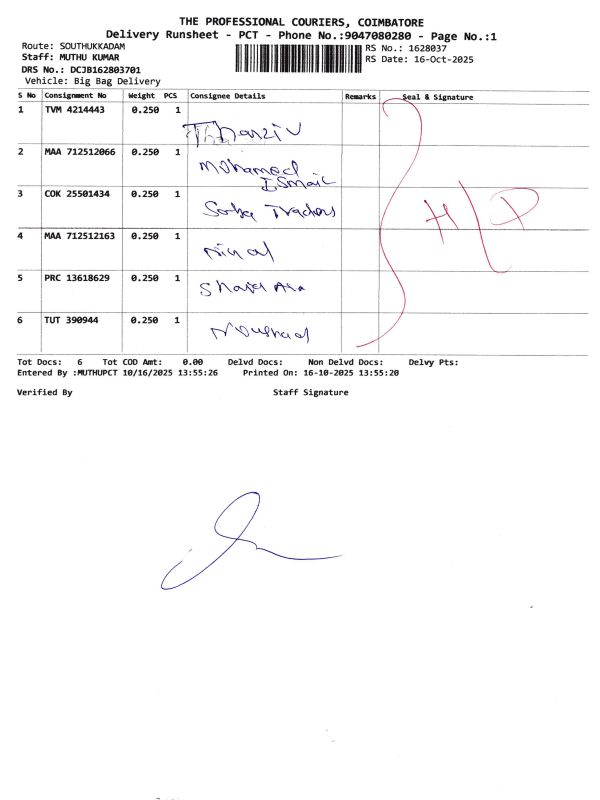 THE PROFESSIONAL COURIERS, COIMBATORE
Delivery Runsheet - PCT - Phone No.:9047080280 - Page No.:1
Route: SOUTHUKKADAM RS No.: 1628037
Staff: MUTHU KUMAR RS Date: 16-Oct-2025
DRS No.: DCJB162803701
Vehicle: Big Bag Delivery
S No Consignment No Weight PCS Consignee Details Remarks Seal & Signature
1 TVM 4214443 0.250 1
2 MAA 712512066 0.250 1 Mohamed
Ismail
3 COK 25501434 0.250 1 Traders
4 MAA 712512163 0.250 1
5 PRC 13618629 0.250 1
6 TUT 390944 0.250 1 Noushad
H/P
Tot Docs: 6 Tot COD Amt: 0.00 Delvd Docs: Non Delvd Docs: Delvy Pts:
Entered By :MUTHUPCT 10/16/2025 13:55:26 Printed On: 16-10-2025 13:55:20
Verified By Staff Signature